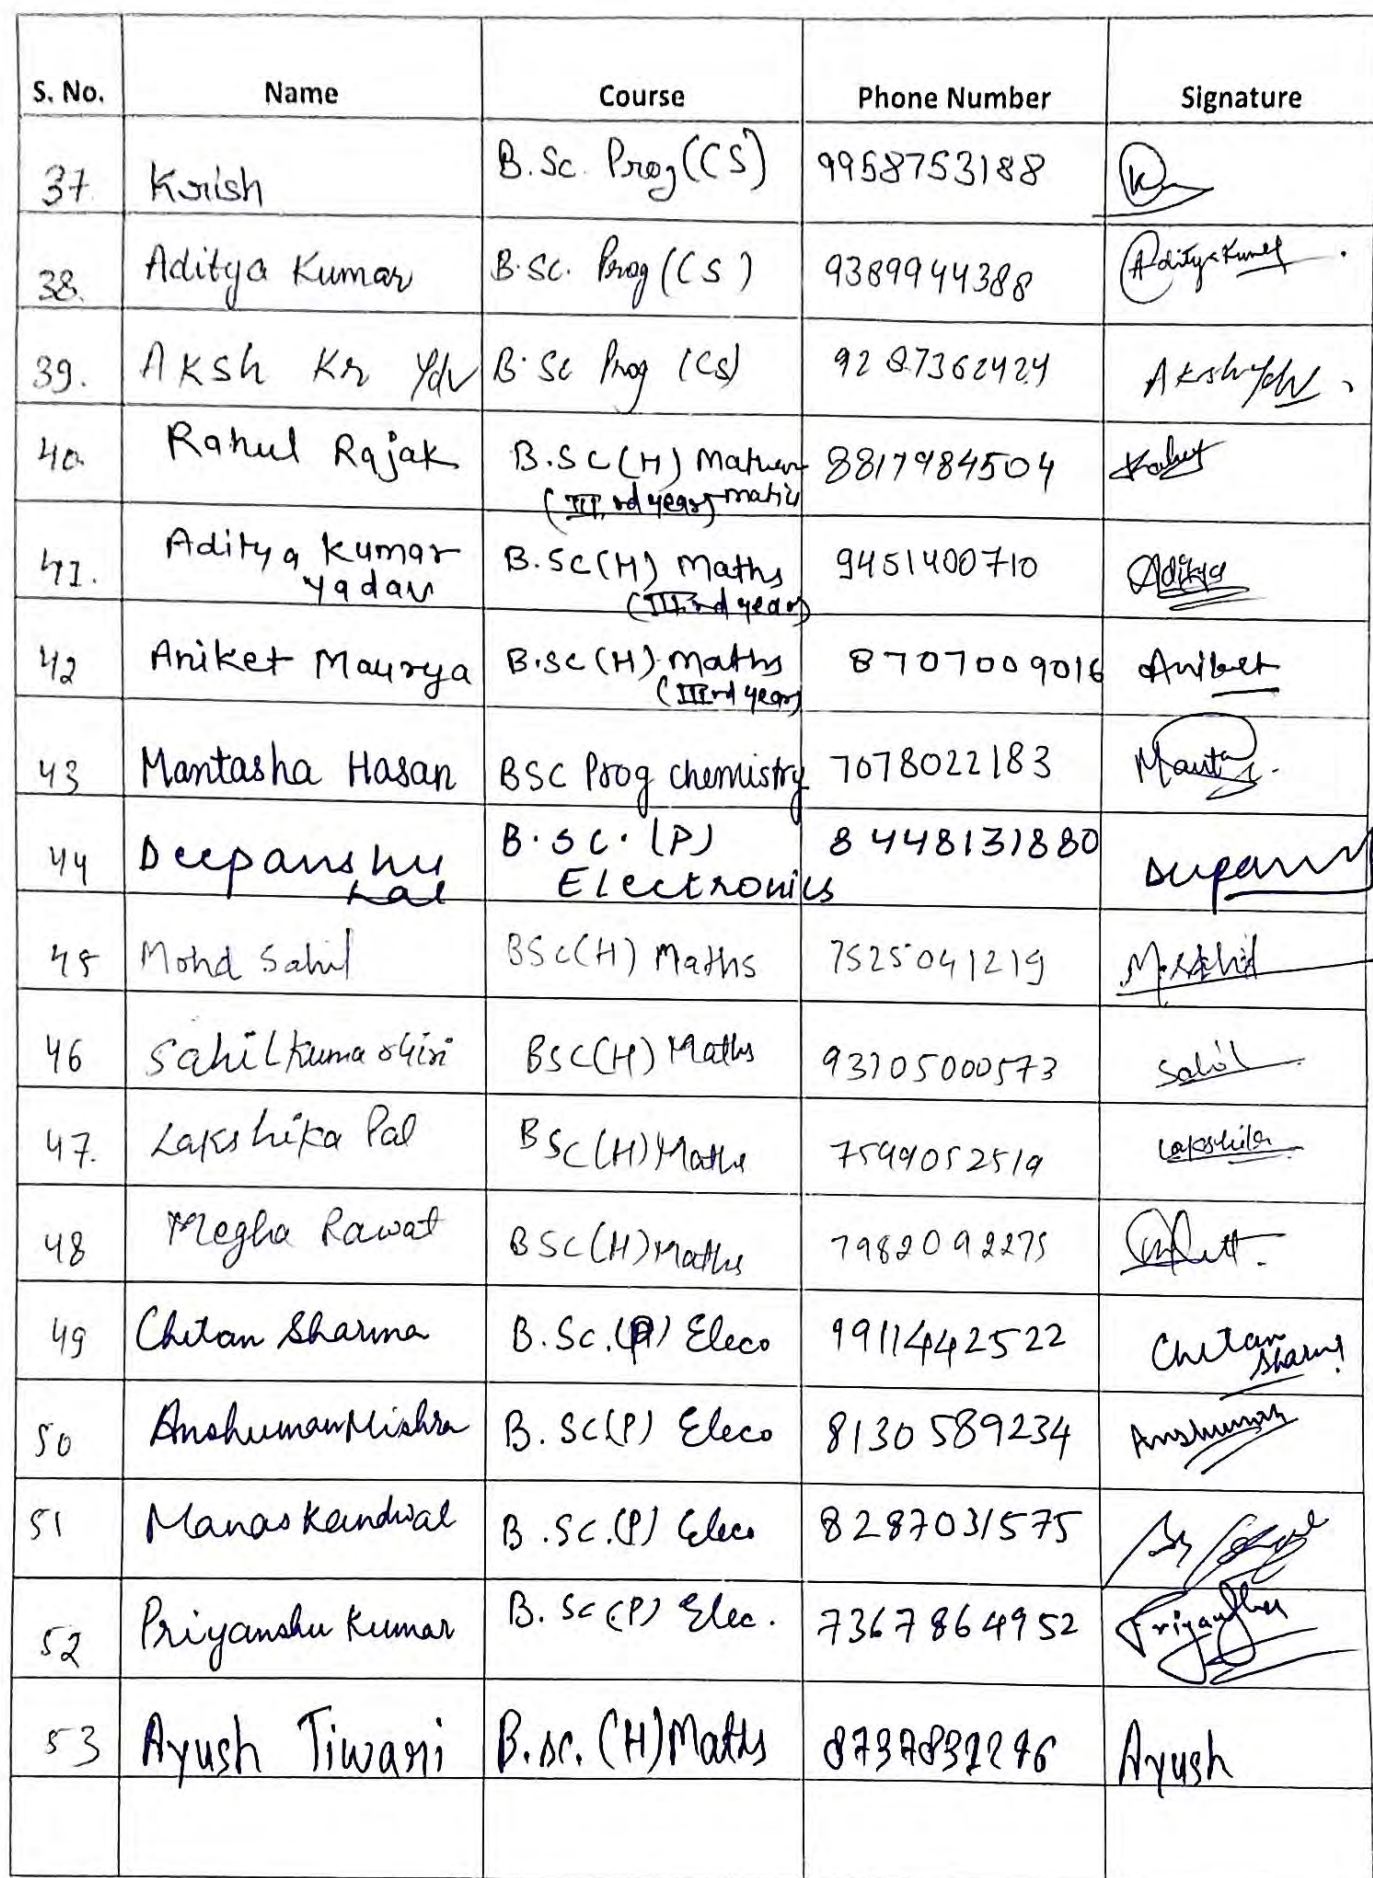 S. No. Name Course Phone Number Signature
37. Krish B.Sc. Prog (CS) 9958753188
38. Aditya Kumar B.Sc. Prog (CS) 9389944388 Aditya Kumar
39. Aksh Kr Ydv B.Sc Prog (Cs) 9287362424 Aksh Ydv
40. Rahul Rajak B.Sc (H) Mathematics 8817984504 Rahul
(IIIrd year)
41. Aditya Kumar B.Sc (H) Maths 9451400710 Aditya
Yadav (IIIrd year)
42 Aniket Maurya B.Sc (H) Maths 8707009016 Aniket
(IIIrd year)
43 Mantasha Hasan BSC Prog chemistry 7078022183
44 Deepanshu B.SC. (P) 8448131880
Lal Electronics
45 Mohd Sahil BSc(H) Maths 7525041219 M.Sahil
46 Sahil Kumar Giri BSC(H) Maths 93105000573 Sahil
47. Lakshika Pal BSC (H) Maths 7599052519 Lakshika
48 Megha Rawat BSC (H) Maths 7982092275
49 Chetan Sharma B.Sc. (P) Eleco 9911442522 Chetan
Sharma
50 Anshuman Mishra B.SC(P) Eleco 8130589234 Anshuman
51 Manas Kandwal B.SC.(P) Eleco 8287031575
52 Priyanshu Kumar B.Sc (P) Elec. 7367864952 Priyanshu
53 Ayush Tiwari B.sc. (H) Maths Ayush